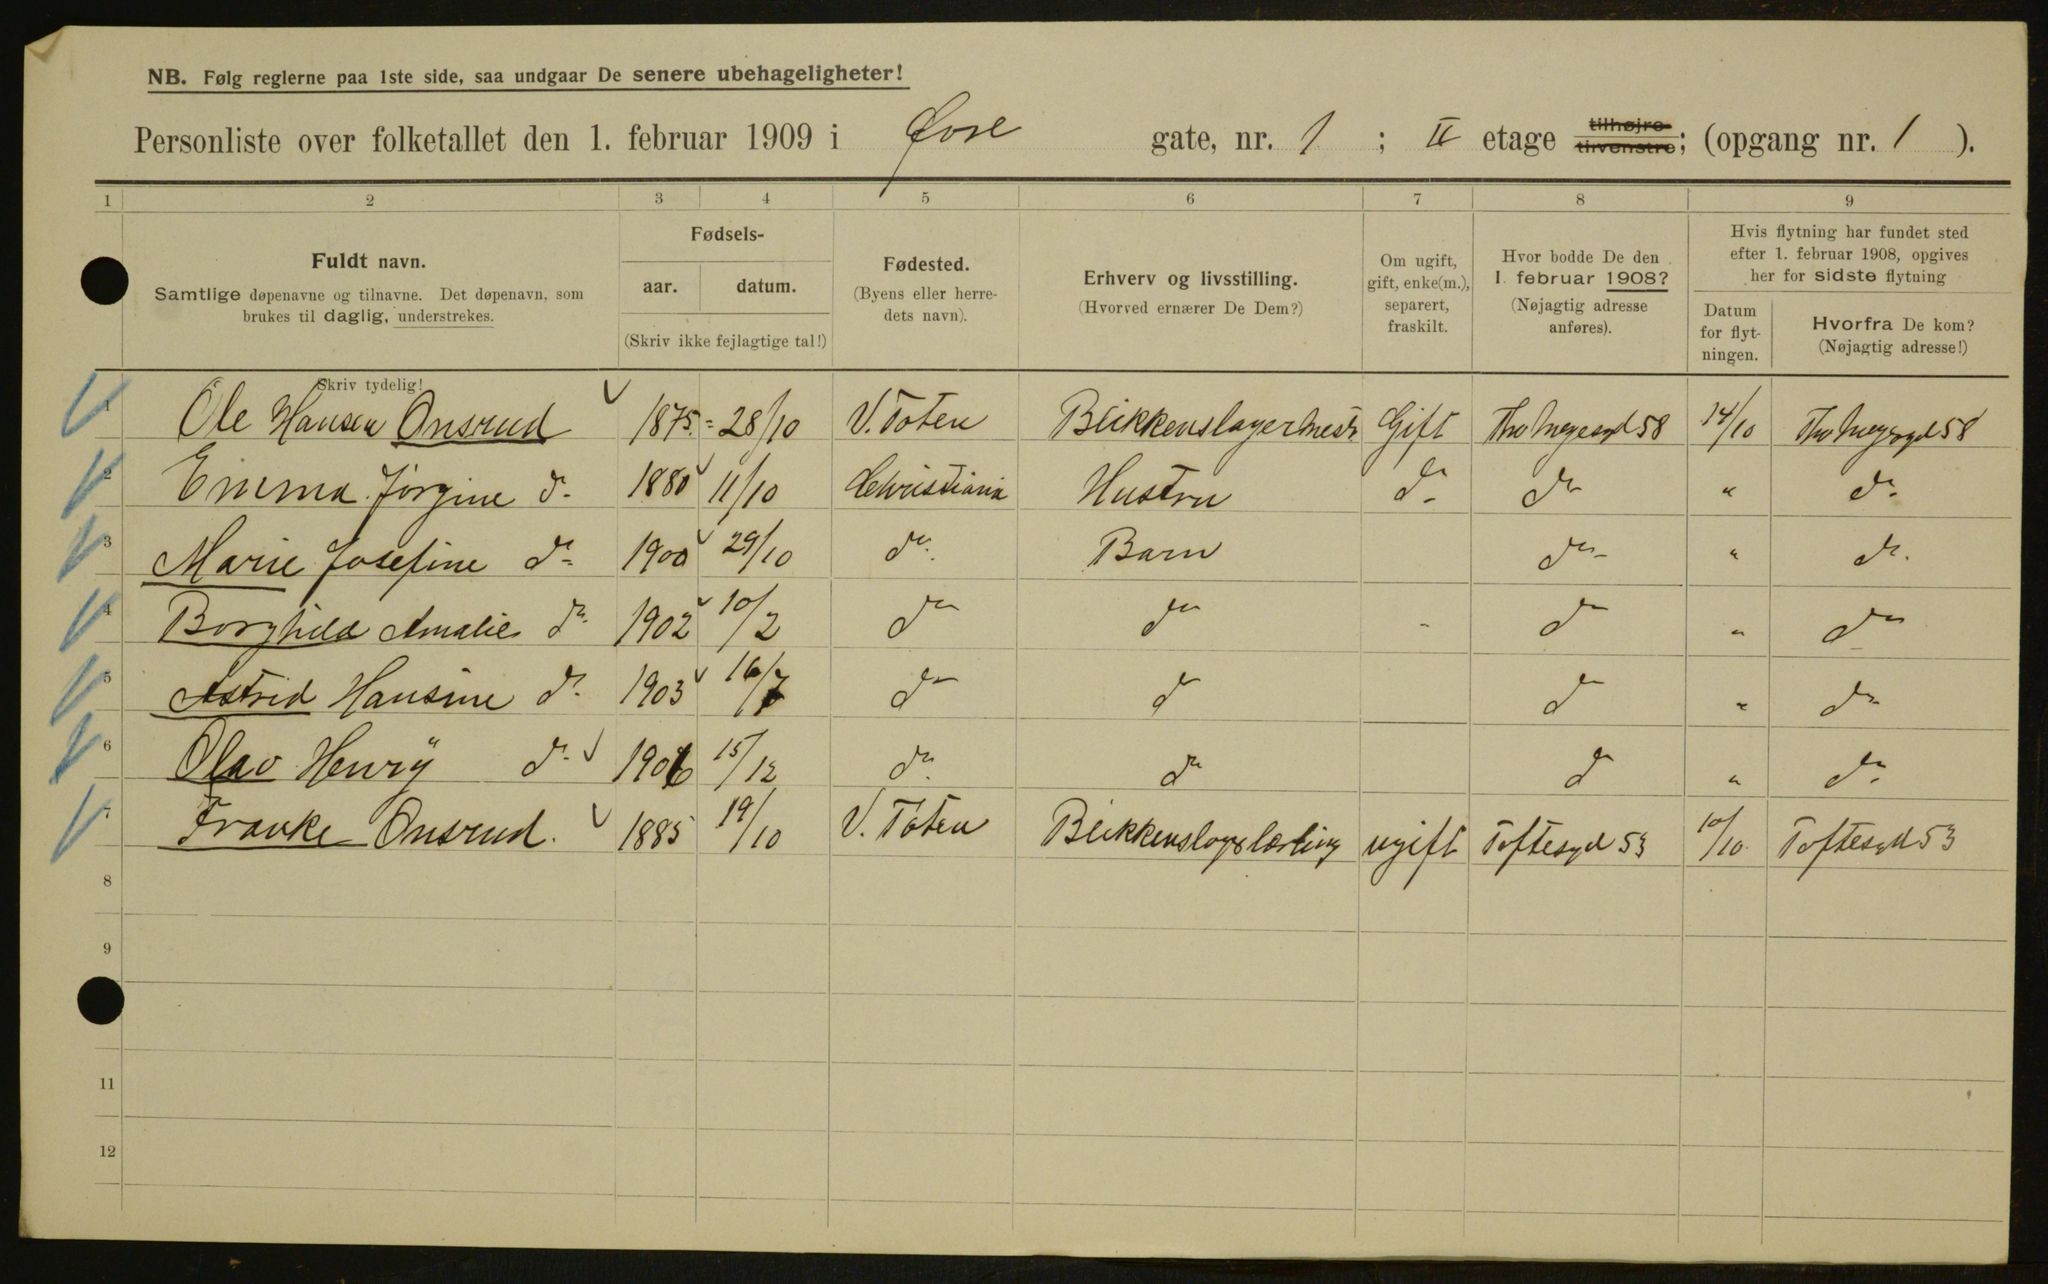 NB. Følg reglerne paa 1ste side, saa undgaar De senere ubehageligheter!
Personliste over folketallet den 1. februar 1909 i gate, nr. 1 ; II etage tilhøjre tilvenstre; (opgang nr. 1 ).
1 2 3 4 5 6 7 8 9
Fuldt navn.
Samtlige døpenavne og tilnavne. Det døpenavn, som
brukes til daglig, understrekes.
Skriv tydelig!
Fødsels-
aar. datum.
(Skriv ikke fejlagtige tal!)
Fødested.
(Byens eller herre-
dets navn).
Erhverv og livsstilling.
(Hvorved ernærer De Dem?)
Om ugift,
gift, enke(m.),
separert,
fraskilt.
Hvor bodde De den
1. februar 1908?
(Nøjagtig adresse
anføres).
Hvis flytning har fundet sted
efter 1. februar 1908, opgives
her for sidste flytning
Datum
for flyt-
ningen.
Hvorfra De kom?
(Nøjagtig adresse!)
1 Ole Hansen Onsrud 1875 28/10 V. Toten Blikkenslagermestr Gift 58 14/10 58
2 Emma Jørgine do 1880 11/10 Christiania Hustru do do " do
3 Marie Josefine do 1900 29/10 do Barn do " do
4 Borghild Amalie do 1902 10/2 do do - do " do
5 Astrid Hansine do 1903 16/7 do do do " do
6 Olav Henrÿ do 1906 15/12 do do do " do
7 Franke Onsrud. 1885 19/10 V. Toten Blikkenslagerlærling ugift Toftesgd 53 10/10 Toftesgd 53
8
9
11
12